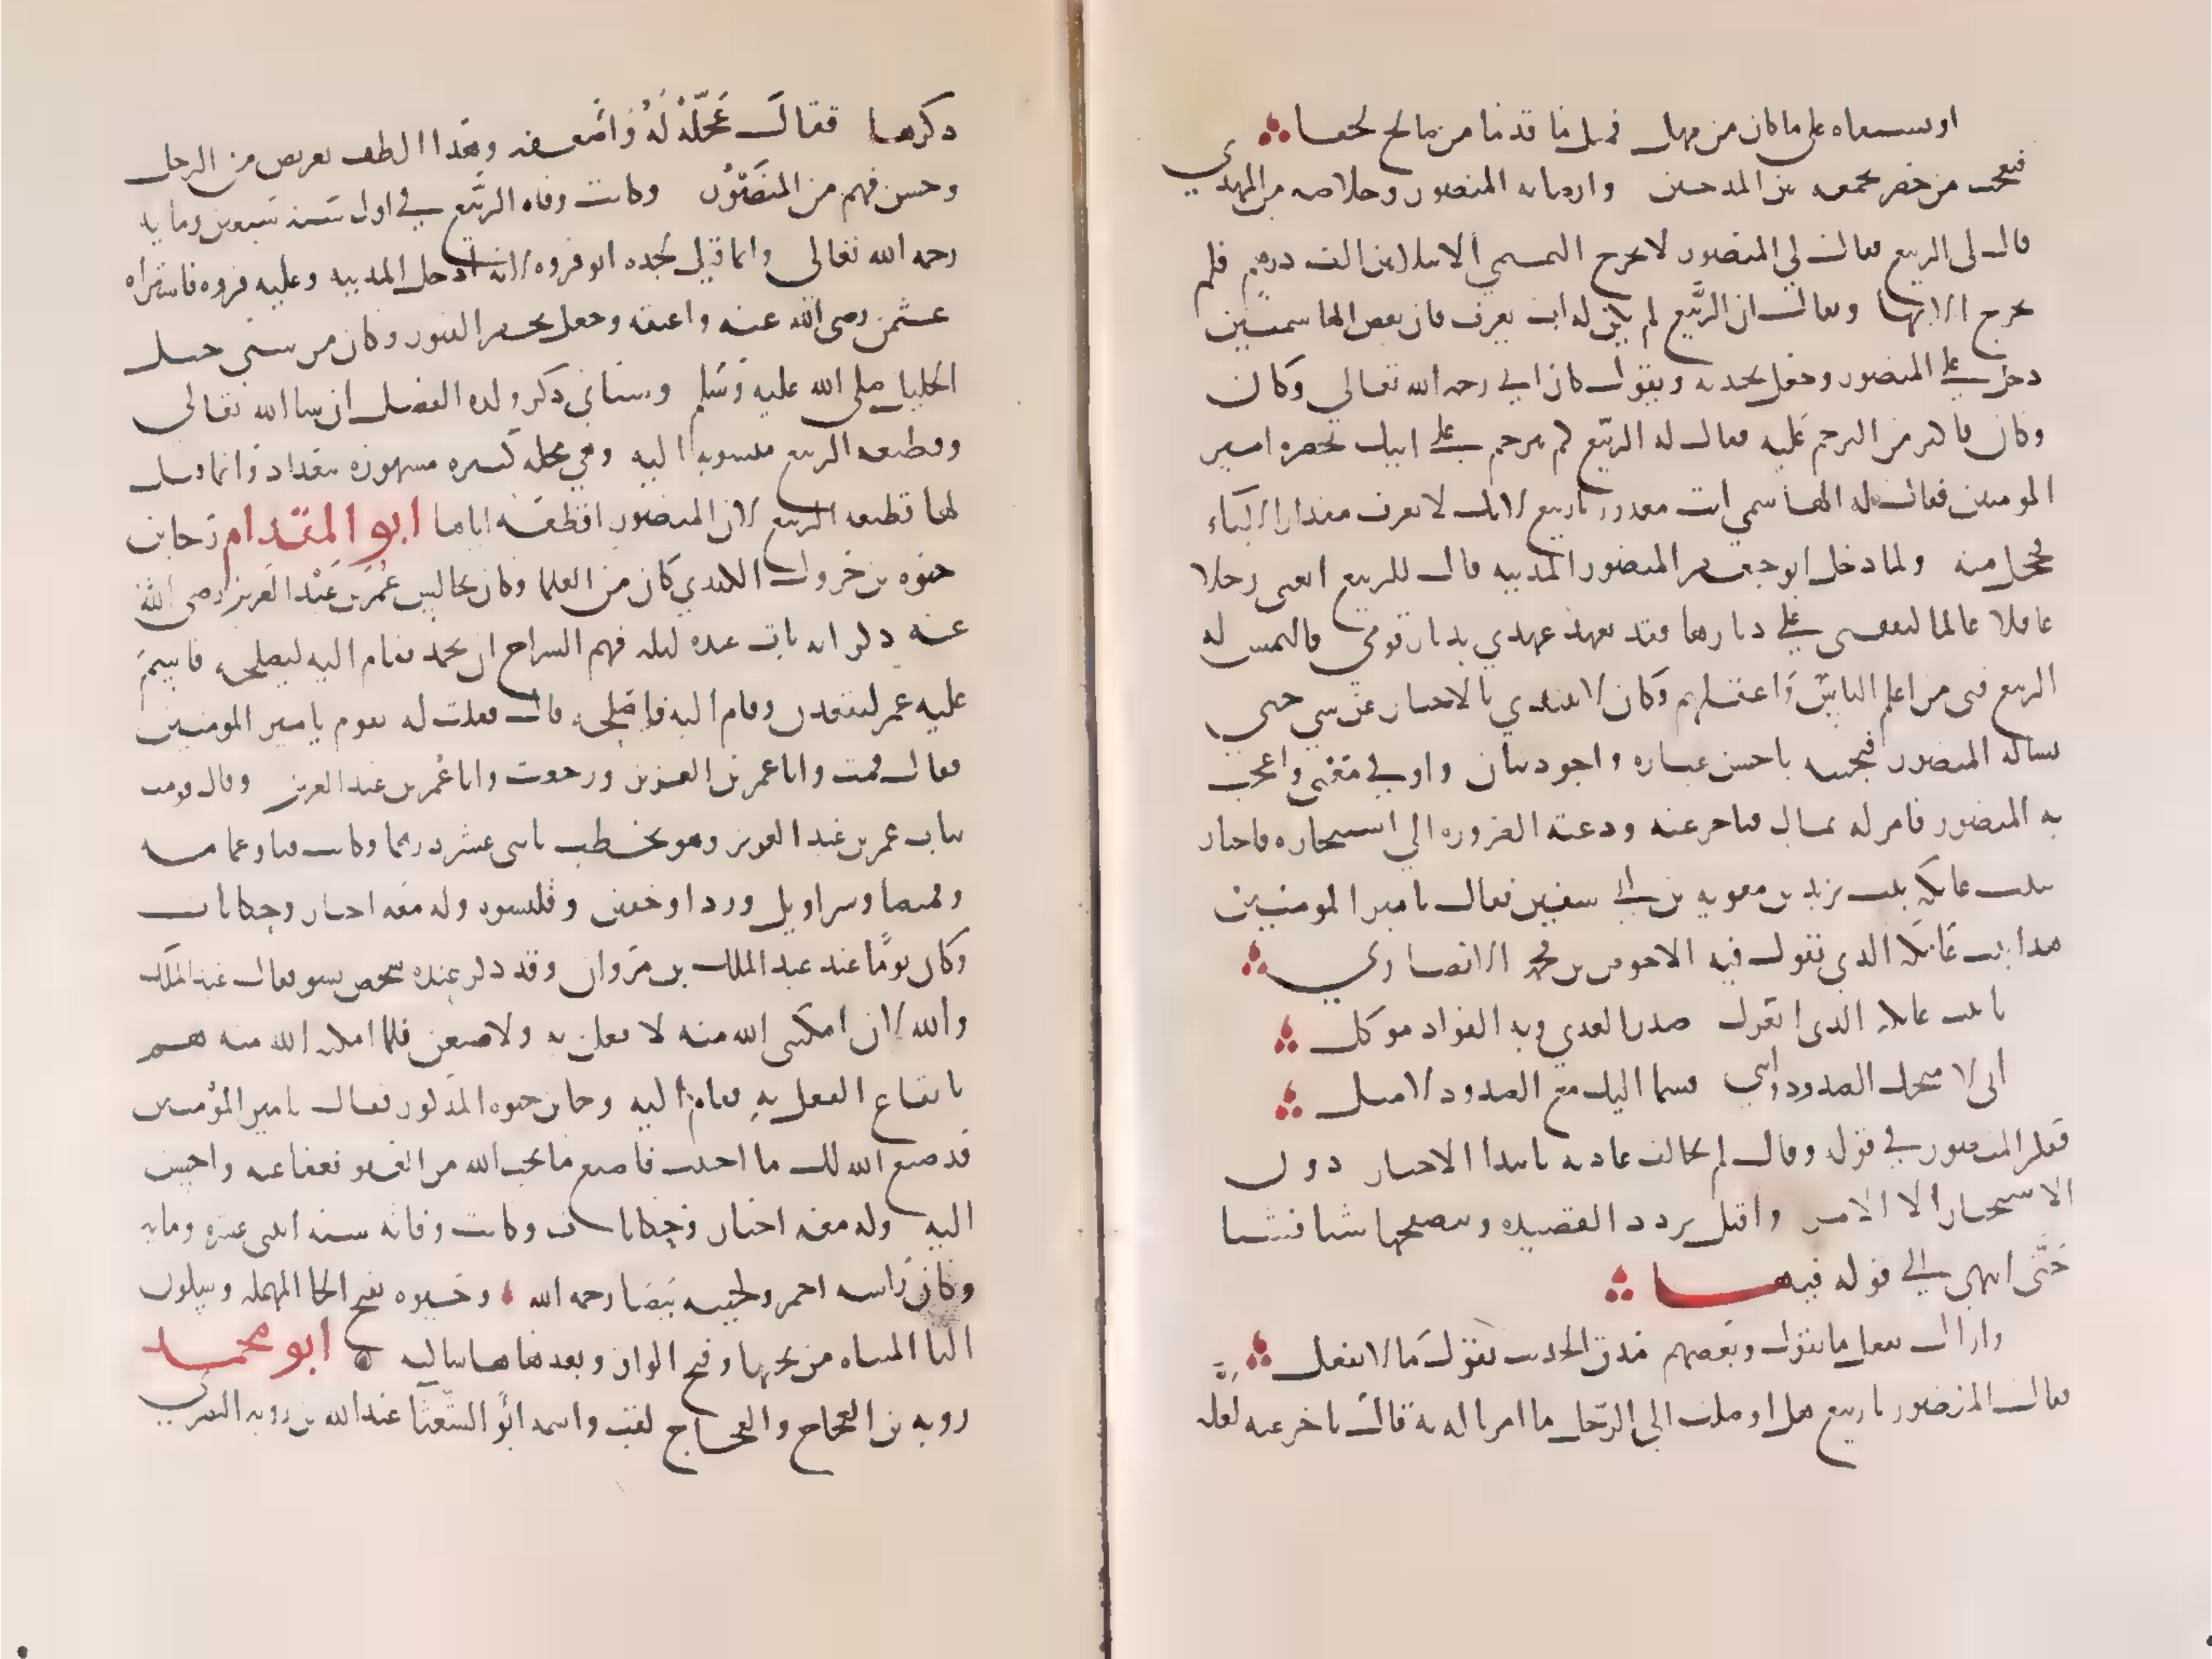 او سسعاه على ما كان من مهل فبل ما قد ما من صالح لحقا
فتعجب من حضر بجمعه بين المدحين وارضائه المنصور وخلاصه من المهدي
قال لى الربيع فقال لي المنصور لا يخرج التميمي الا بثلاثين الف درهم فلم
يخرج الا بها ويقال ان الربيع لم يكن له اب يعرف فان بعض الهاشميين
دخل على المنصور وجعل يحدثه ويقول كان ابي رحمه الله تعالى وكان
وكان فاكثر من الترحم عليه فقال له الربيع كم ترحم على ابيك بحضرة امير
المومنين فقال له الهاشمي انت معذور يا ربيع لانك لا تعرف مقدار الاباء
فخجل منه ولما دخل ابو جعفر المنصور المدينه قال للربيع ابغى رجلا
عاقلا عالما ليقفنى على دارها فقد بعد عهدي بديار قومي فالتمس له
الربيع فتى من اعلم الناس واعقلهم وكان لا يبتدي بالاخبار عن شي حتى
يساله المنصور فيجيبه باحسن عباره واجود بيان واوفى معنى واعجب
به المنصور فامر له بمال فتاخر عنه ودعته الضروره الى استنجازه فاجتاز
ببيت عاتكه بنت يزيد بن معويه بن ابي سفين فقال يا امير المومنين
هذا بيت عاتكه الذي يقول فيه الاحوص بن محمد الانصاري
يا بيت عاتكه الذى اتعزل حذر العدي وبه الفواد موكل
انى لامنحك الصدود وانني قسما اليك مع الصدود لاميل
ففكر المنصور في قوله وقال لم يخالف عادته بابتدا الاخبار دون
الاستخبار الا لامر واقبل يردد القصيده ويتصفحها شيا فشيا
حتى انتهى الى قوله فيها
واراك تفعل ما تقول وبعضهم مذق الحديث يقول ما لا يفعل
فقال المنصور يا ربيع هل اوصلت الى الرجل ما امرنا له به قال تاخر عنه لعله
ذكرها فقال عجله له واضعفه وهذا الطف تعريض من الرجل
وحسن فهم من المنصور وكانت وفاه الربيع في اول سنه سبعين ومايه
رحمه الله تعالى وانما قيل لجده ابو فروه لانه ادخل المدينه وعليه فروه فاشتراه
عثمن رضى الله عنه واعتقه وجعل يحفر القبور وكان من سبى جبل
الخليل صلى الله عليه وسلم وسياتي ذكر ولده الفضل ان شا الله تعالى
وقطيعه الربيع منسوبه اليه وهي محله كبيره مشهوره ببغداد وانما قيل
لها قطيعه الربيع لان المنصور اقطعه اياها ابو المقدام رجا بن
حيوه بن جرول الكندي كان من العلما وكان يجالس عمر بن عبد العزيز رضى الله
عنه ذكر انه بات عنده ليله فهم السراج ان يخمد فقام اليه ليصلحه فاقسم
عليه عمر ليقعدن وقام اليه فاصلحه قال فقلت له تقوم يا امير المومنين
فقال قمت وانا عمر بن العزيز ورجعت وانا عمر بن عبد العزيز وقال قومت
ثياب عمر بن عبد العزيز وهو يخطب باثنى عشر درهما وكانت قبا وعمامه
وقميصا وسراويل وردا وخفين وقلنسوه وله معه اخبار وحكايات
وكان يوما عند عبد الملك بن مروان وقد ذكر عنده شخص بسو فقال عبد الملك
والله لان امكننى الله منه لا فعلن به ولاصنعن فلما امكنه الله منه هم
بايقاع الفعل به فقام اليه رجا بن حيوه المذكور فقال يا امير المومنين
قد صنع الله لك ما احببت فاصنع ما يحب الله من العفو فعفا عنه واحسن
اليه وله معه اخبار وحكايات وكانت وفاته سنه اثنى عشره ومايه
وكان راسه احمر ولحيته بيضا رحمه الله وحيوه بفتح الحا المهمله وسكون
اليا المثناه من تحتها وفتح الواو وبعدها ها ساكنه ابو محمد
روبه بن العجاج والعجاج لقب واسمه ابو الشعثا عبد الله بن روبه البصري